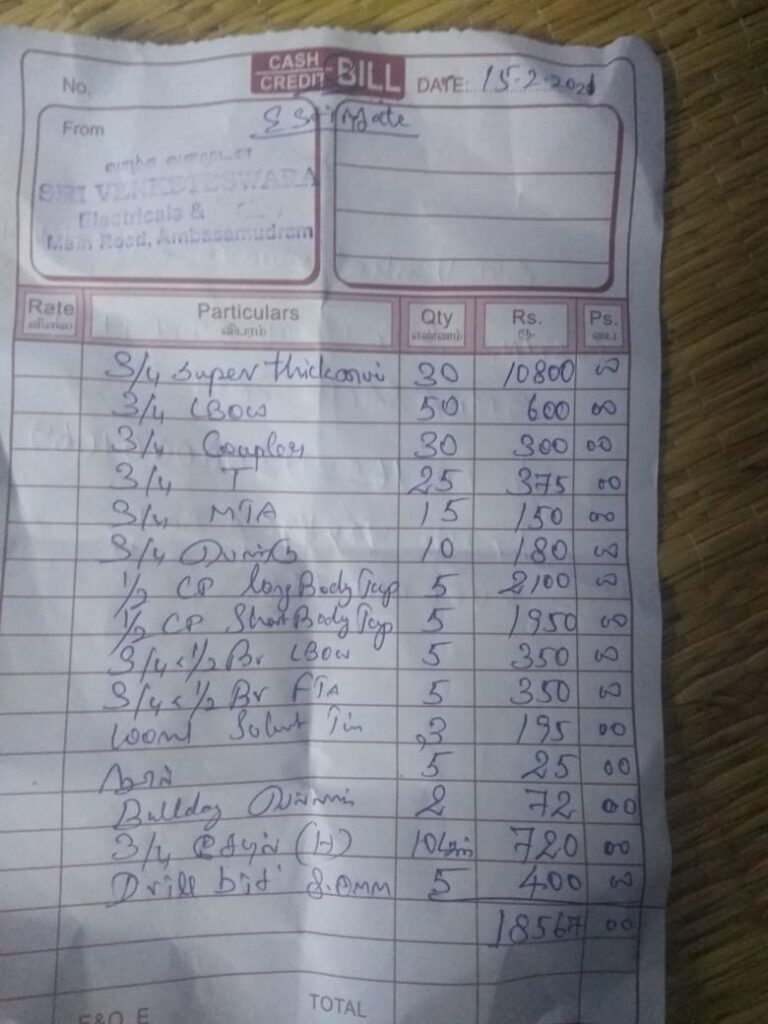 CASH
CREDIT BILL
No. DATE: 15-2-2021
Estimate
From
SRI VENKETESWARA
Electricals &
Main Road, Ambasamudram
Rate Particulars Qty Rs. Ps.
விலை விபரம் எண்ணம் ரூ. பை
3/4 super thick 30 10800 00
3/4 LBOW 50 600 00
3/4 Coupler 30 300 00
3/4 T 25 375 00
3/4 MTA 15 150 00
3/4 10 180 00
1/2 CP long Body Tap 5 2100 00
1/2 CP Short Body Tap 5 1950 00
3/4 x 1/2 Br LBOW 5 350 00
3/4 x 1/2 Br FTA 5 350 00
100ml Solvent Tin 3 195 00
நூல் 5 25 00
Bulldog 2 72 00
3/4 10 720 00
Drill bit 8.0MM 5 400 00
18567 00
TOTAL
E&O.E